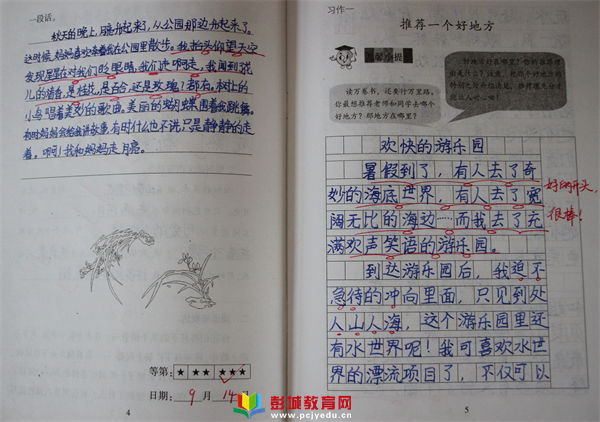 一段话。
秋天的晚上，月亮升起来了，从公园那边升起来了。
这时候，妈妈喜欢牵着我在公园里散步。我抬头仰望天空
发现星星在对我们眨眼睛，我们走啊走，我闻到花
儿的清香，是桂花，是百合，还是玫瑰？都有。树上的
小鸟唱着美妙的歌曲。美丽的蝴蝶围着我跳舞。
有时妈妈会给我讲故事，有时什么也不说，只是静静的走
着。啊！我和妈妈走月亮。
等第：★ ★★ ★★★
日期：9月14日
4
习作一
推荐一个好地方
温馨小提
读万卷书，还要行万里路。
你最想推荐老师和同学去哪个
好地方？那地方在哪里？
欢快的游乐园
暑假到了，有人去了奇
妙的海底世界，有人去了宽
阔无比的海边……而我去了充
满欢声笑语的游乐园。
好的开头，
很棒！
到达游乐园后，我迫不
急待的冲向里面，只见到处
人山人海，这个游乐园里还
有水世界呢！我可喜欢水世
界的漂流项目了，不仅可以
5
彭城教育网
www.pcjyedu.cn